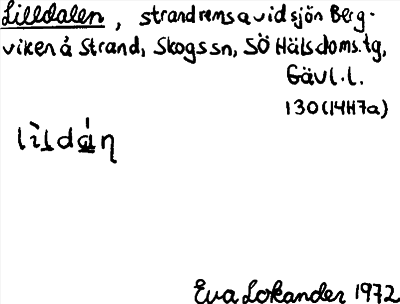 Lilldalen, strandremsa vid sjön Berg-
viken å Strand, Skogs sn, SÖ Häls doms.tg,
Gävl.l.
130(14H7a)
lìldán
Eva Lokander 1972